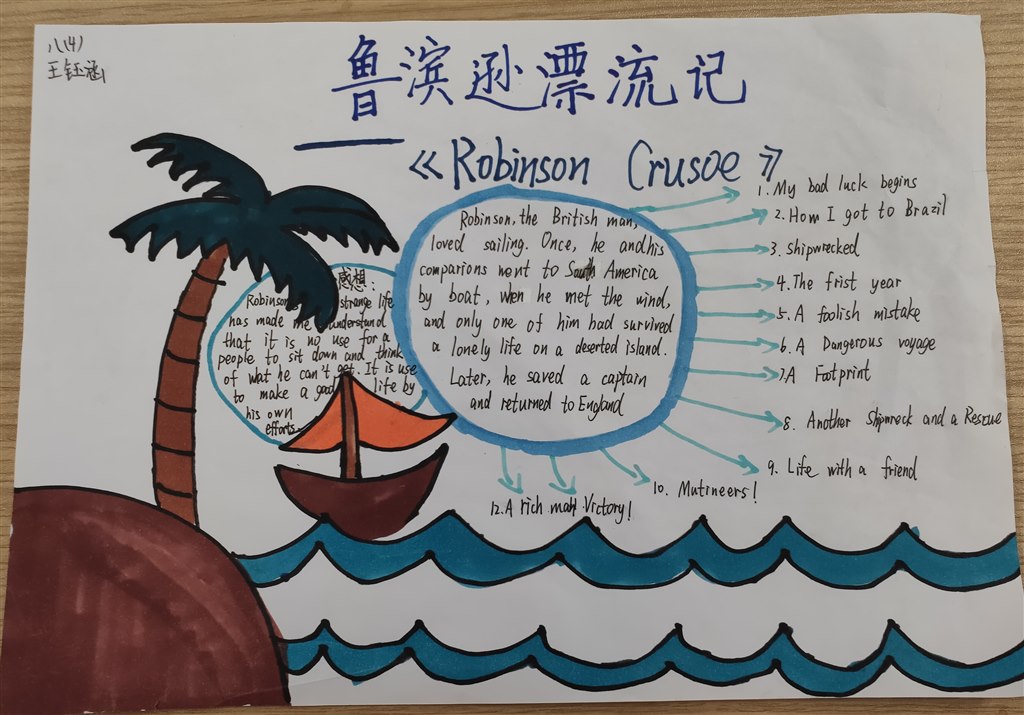 八(4)
王钰涵
鲁滨逊漂流记
——《Robinson Crusoe》
Robinson, the British man,
loved sailing. Once, he and his
comparions went to South America
by boat, when he met the wind,
and only one of him had survived
a lonely life on a deserted island.
Later, he saved a captain
and returned to England
感想:
Robinson strange life
has made me understand
that it is no use for a
people to sit down and think
of wat he can't get. It is use
to make a good life by
his own
efforts.
1. My bad luck begins
2. How I got to Brazil
3. Shipwrecked
4. The frist year
5. A foolish mistake
6. A Dangerous voyage
7. A Footprint
8. Another Shipwreck and a Rescue
9. Life with a friend
10. Mutineers!
12. A rich man Victory!